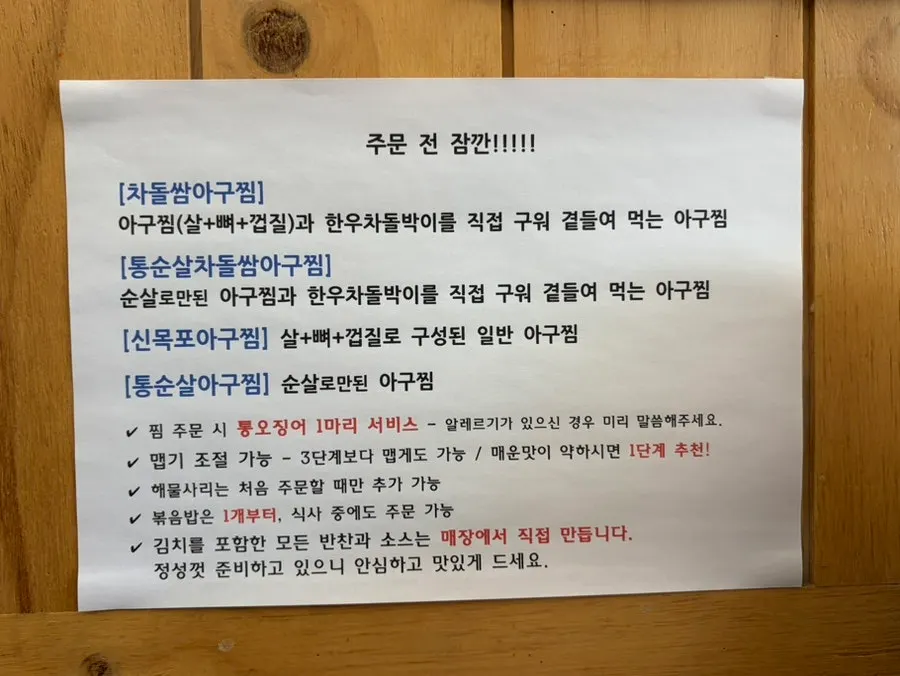 주문 전 잠깐!!!!!
[차돌쌈아구찜]
아구찜(살+뼈+껍질)과 한우차돌박이를 직접 구워 곁들여 먹는 아구찜
[통순살차돌쌈아구찜]
순살로만된 아구찜과 한우차돌박이를 직접 구워 곁들여 먹는 아구찜
[신목포아구찜] 살+뼈+껍질로 구성된 일반 아구찜
[통순살아구찜] 순살로만된 아구찜
✔ 찜 주문 시 통오징어 1마리 서비스 - 알레르기가 있으신 경우 미리 말씀해주세요.
✔ 맵기 조절 가능 - 3단계보다 맵게도 가능 / 매운맛이 약하시면 1단계 추천!
✔ 해물사리는 처음 주문할 때만 추가 가능
✔ 볶음밥은 1개부터, 식사 중에도 주문 가능
✔ 김치를 포함한 모든 반찬과 소스는 매장에서 직접 만듭니다.
정성껏 준비하고 있으니 안심하고 맛있게 드세요.